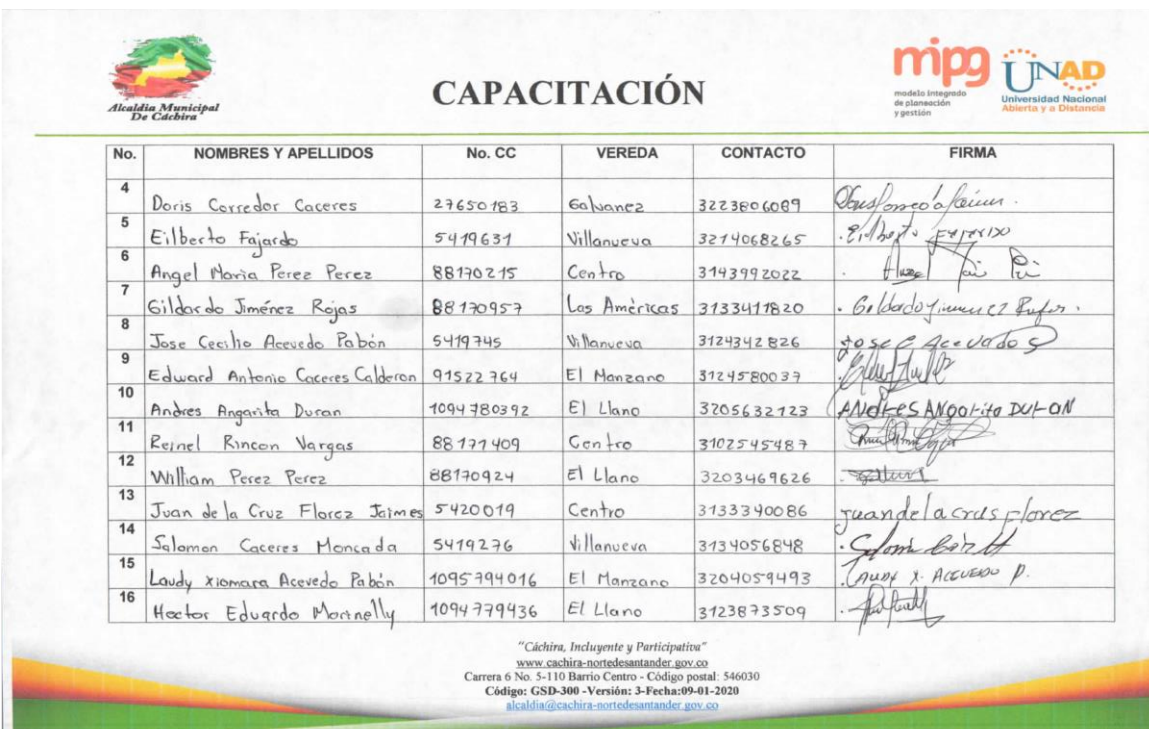 Alcaldia Municipal
De Cáchira
CAPACITACIÓN
mipg
modelo integrado
de planeación
y gestión
UNAD
Universidad Nacional
Abierta y a Distancia
No. NOMBRES Y APELLIDOS No. CC VEREDA CONTACTO FIRMA
4 Doris Corredor Caceres 27650183 Galvanez 3223806089
5 Eilberto Fajardo 5419631 Villanueva 3214068265 Eilberto Fajardo
6 Angel Maria Perez Perez 88170215 Centro 3143992022
7 Gildardo Jiménez Rojas 88170957 Las Américas 3133411820
8 Jose Cecilio Acevedo Pabón 5419745 Villanueva 3124342826 Jose C Acevado
9 Edward Antonio Caceres Calderon 91522764 El Manzano 3124580037
10 Andres Angarita Duran 1094780392 El Llano 3205632123 ANdres ANgarita DurAN
11 Reinel Rincon Vargas 88171409 Centro 3102545487
12 William Perez Perez 88170924 El Llano 3203469626
13 Juan de la Cruz Florez Jaimes 5420019 Centro 3133340086 juan de la crus Florez
14 Salomon Caceres Moncada 5419276 Villanueva 3134056848
15 Laudy Xiomara Acevedo Pabón 1095794016 El Manzano 3204059493 LAUDY X. ACEVEDO P.
16 Hector Eduardo Morinelly 1094779436 El Llano 3123873509
"Cáchira, Incluyente y Participativa"
www.cachira-nortedesantander.gov.co
Carrera 6 No. 5-110 Barrio Centro - Código postal: 546030
Código: GSD-300 -Versión: 3-Fecha:09-01-2020
alcaldia@cachira-nortedesantander.gov.co